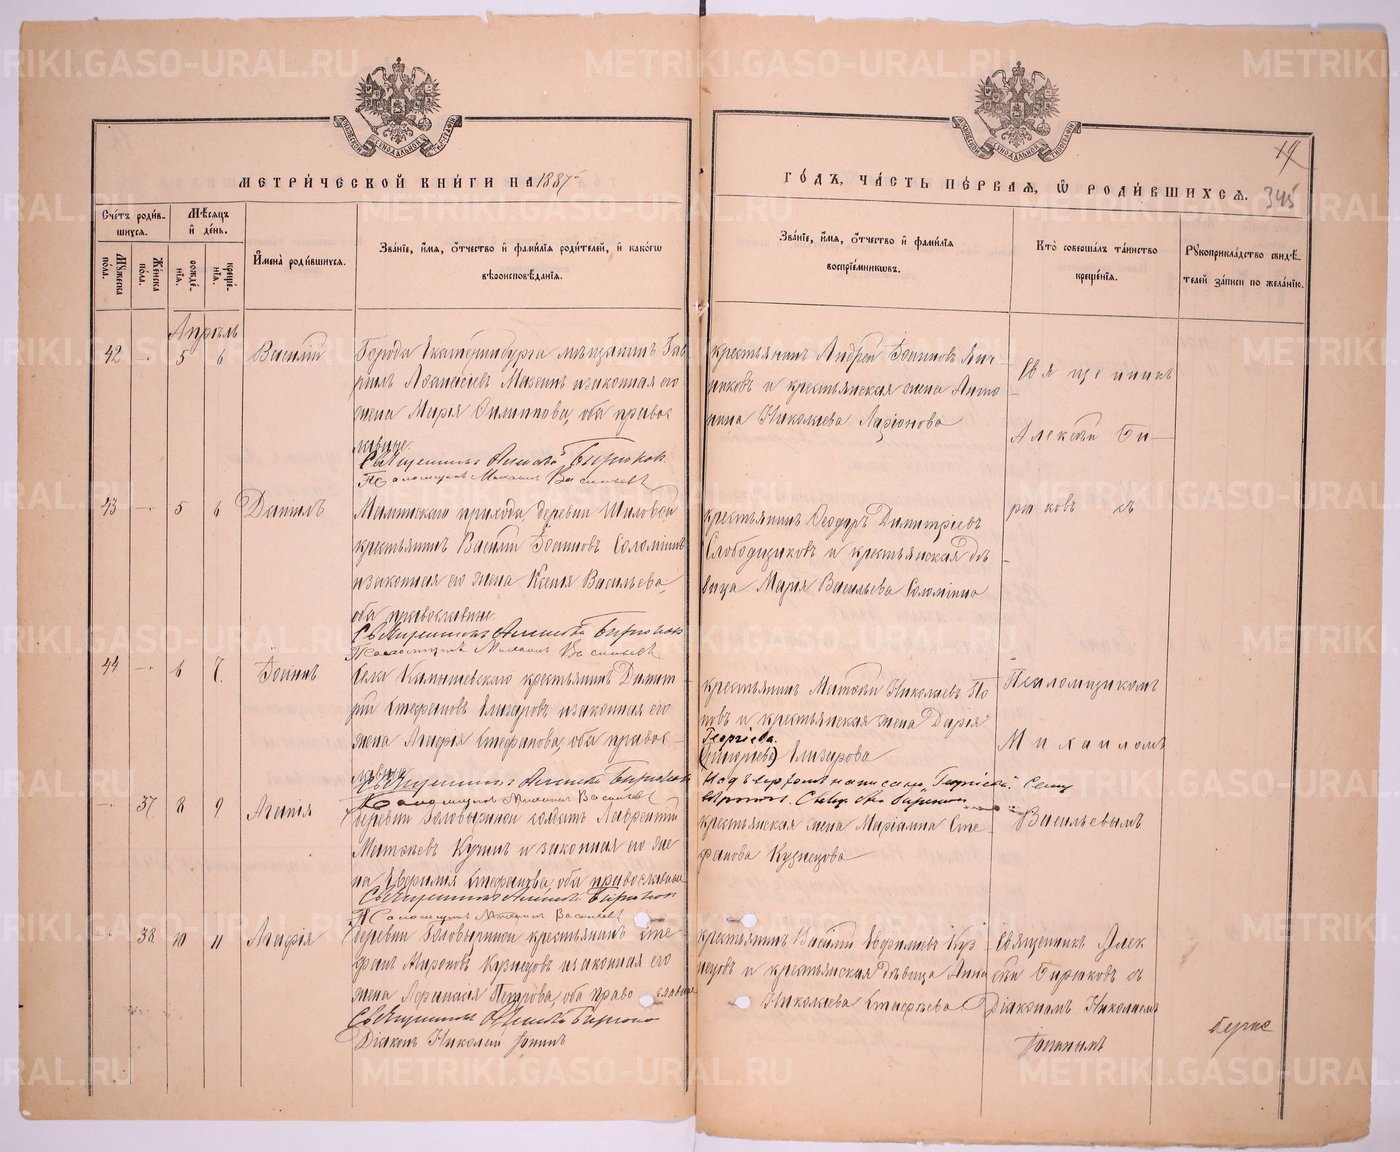 МЕТРИ́ЧЕСКОЙ КНИ́ГИ НА 1887
ГО́ДЪ, ЧА́СТЬ ПЕ́РВАЯ, Ѡ РОДИ́ВШИХСЯ.
19
345
Сче́тъ роди́в-
шихся.
Мѣ́сяцъ
и́ де́нь.
Му́жеска
по́ла.
Же́нска
по́ла.
рожде́-
нїя.
креще́-
нїя.
И҆мена̀ роди́вшихся.
Зва́нїе, и҆́мя, ѻ҆́тчество и҆ фами́лїя роди́телей, и҆ како́гѡ
вѣроисповѣ́данїя.
Зва́нїе, и҆́мя, ѻ҆́тчество и҆ фами́лїя
воспрїе́мниковъ.
Кто̀ соверша́лъ та́инство
креще́нїя.
Рꙋкоприкла́дство свидѣ́-
телей за́писи по жела́нїю.
Апрѣль
42 5 6 Василій
Города Екатеринбурга мѣщанинъ Гав-
рилъ Аѳанасіевъ Мазеинъ и законная его
жена Марія Филиппова, оба правос
лавные.
Священникъ Алексѣй Бирюков
Псаломщикъ Михаилъ Васильевъ
крестьянинъ Андрей Іоанновъ
и крестьянская жена Анто
нина Николаева Ларіонова
Священникъ
Алексѣй Би-
рюковъ съ
43 5 6 Даніилъ
Маминскаго прихода, деревни Шиловой
крестьянинъ Василій Іоанновъ Соломѣинъ
и законная его жена Ксенія Васильева,
оба православные.
Священникъ Алексѣй Бирюков
Псаломщикъ Михаилъ Васильевъ
крестьянинъ Ѳеодоръ Димитріевъ
Слободчиковъ и крестьянская дѣ
вица Марія Васильева Соломѣина
44 6 7. Іоаннъ
Села Камышевскаго крестьянинъ Димит-
рій Стефановъ Елизаровъ и законная его
жена Агафія Стефанова, оба правос-
лавные
Священникъ Алексѣй Бирюков
Псаломщикъ Михаилъ Васильевъ
крестьянинъ Матвѣй Николаевъ По
повъ и крестьянская жена Дарія
Георгіева
(Григорьева) Елизарова
Надъ верхомъ написано, Георгіева. Сему
вѣрить. Свящ. Ал. Бирюков
Псаломщикомъ
Михаиломъ
Васильевымъ
37. 8 9 Агапія
деревни Головыриной солдатъ Лаврентій
Матѳіевъ Кучинъ и законная его же
на Евфимія Стефанова, оба православные
Священникъ Алексѣй Бирюков
Псаломщикъ Михаилъ Васильевъ
крестьянская жена Маріамна Сте
фанова Кузнецова
38 10 11 Агафія
деревни Головыриной крестьянинъ Сте-
фанъ Мироновъ Кузнецовъ и законная его
жена Петрова, оба православные
Священникъ Алексѣй Бирюков
Діаконъ Николай
крестьянинъ Василій Евфиміевъ Куз
нецовъ и крестьянская дѣвица Анна
Николаева
Священникъ Алек
сѣй Бирюковъ съ
Діакономъ Николаемъ